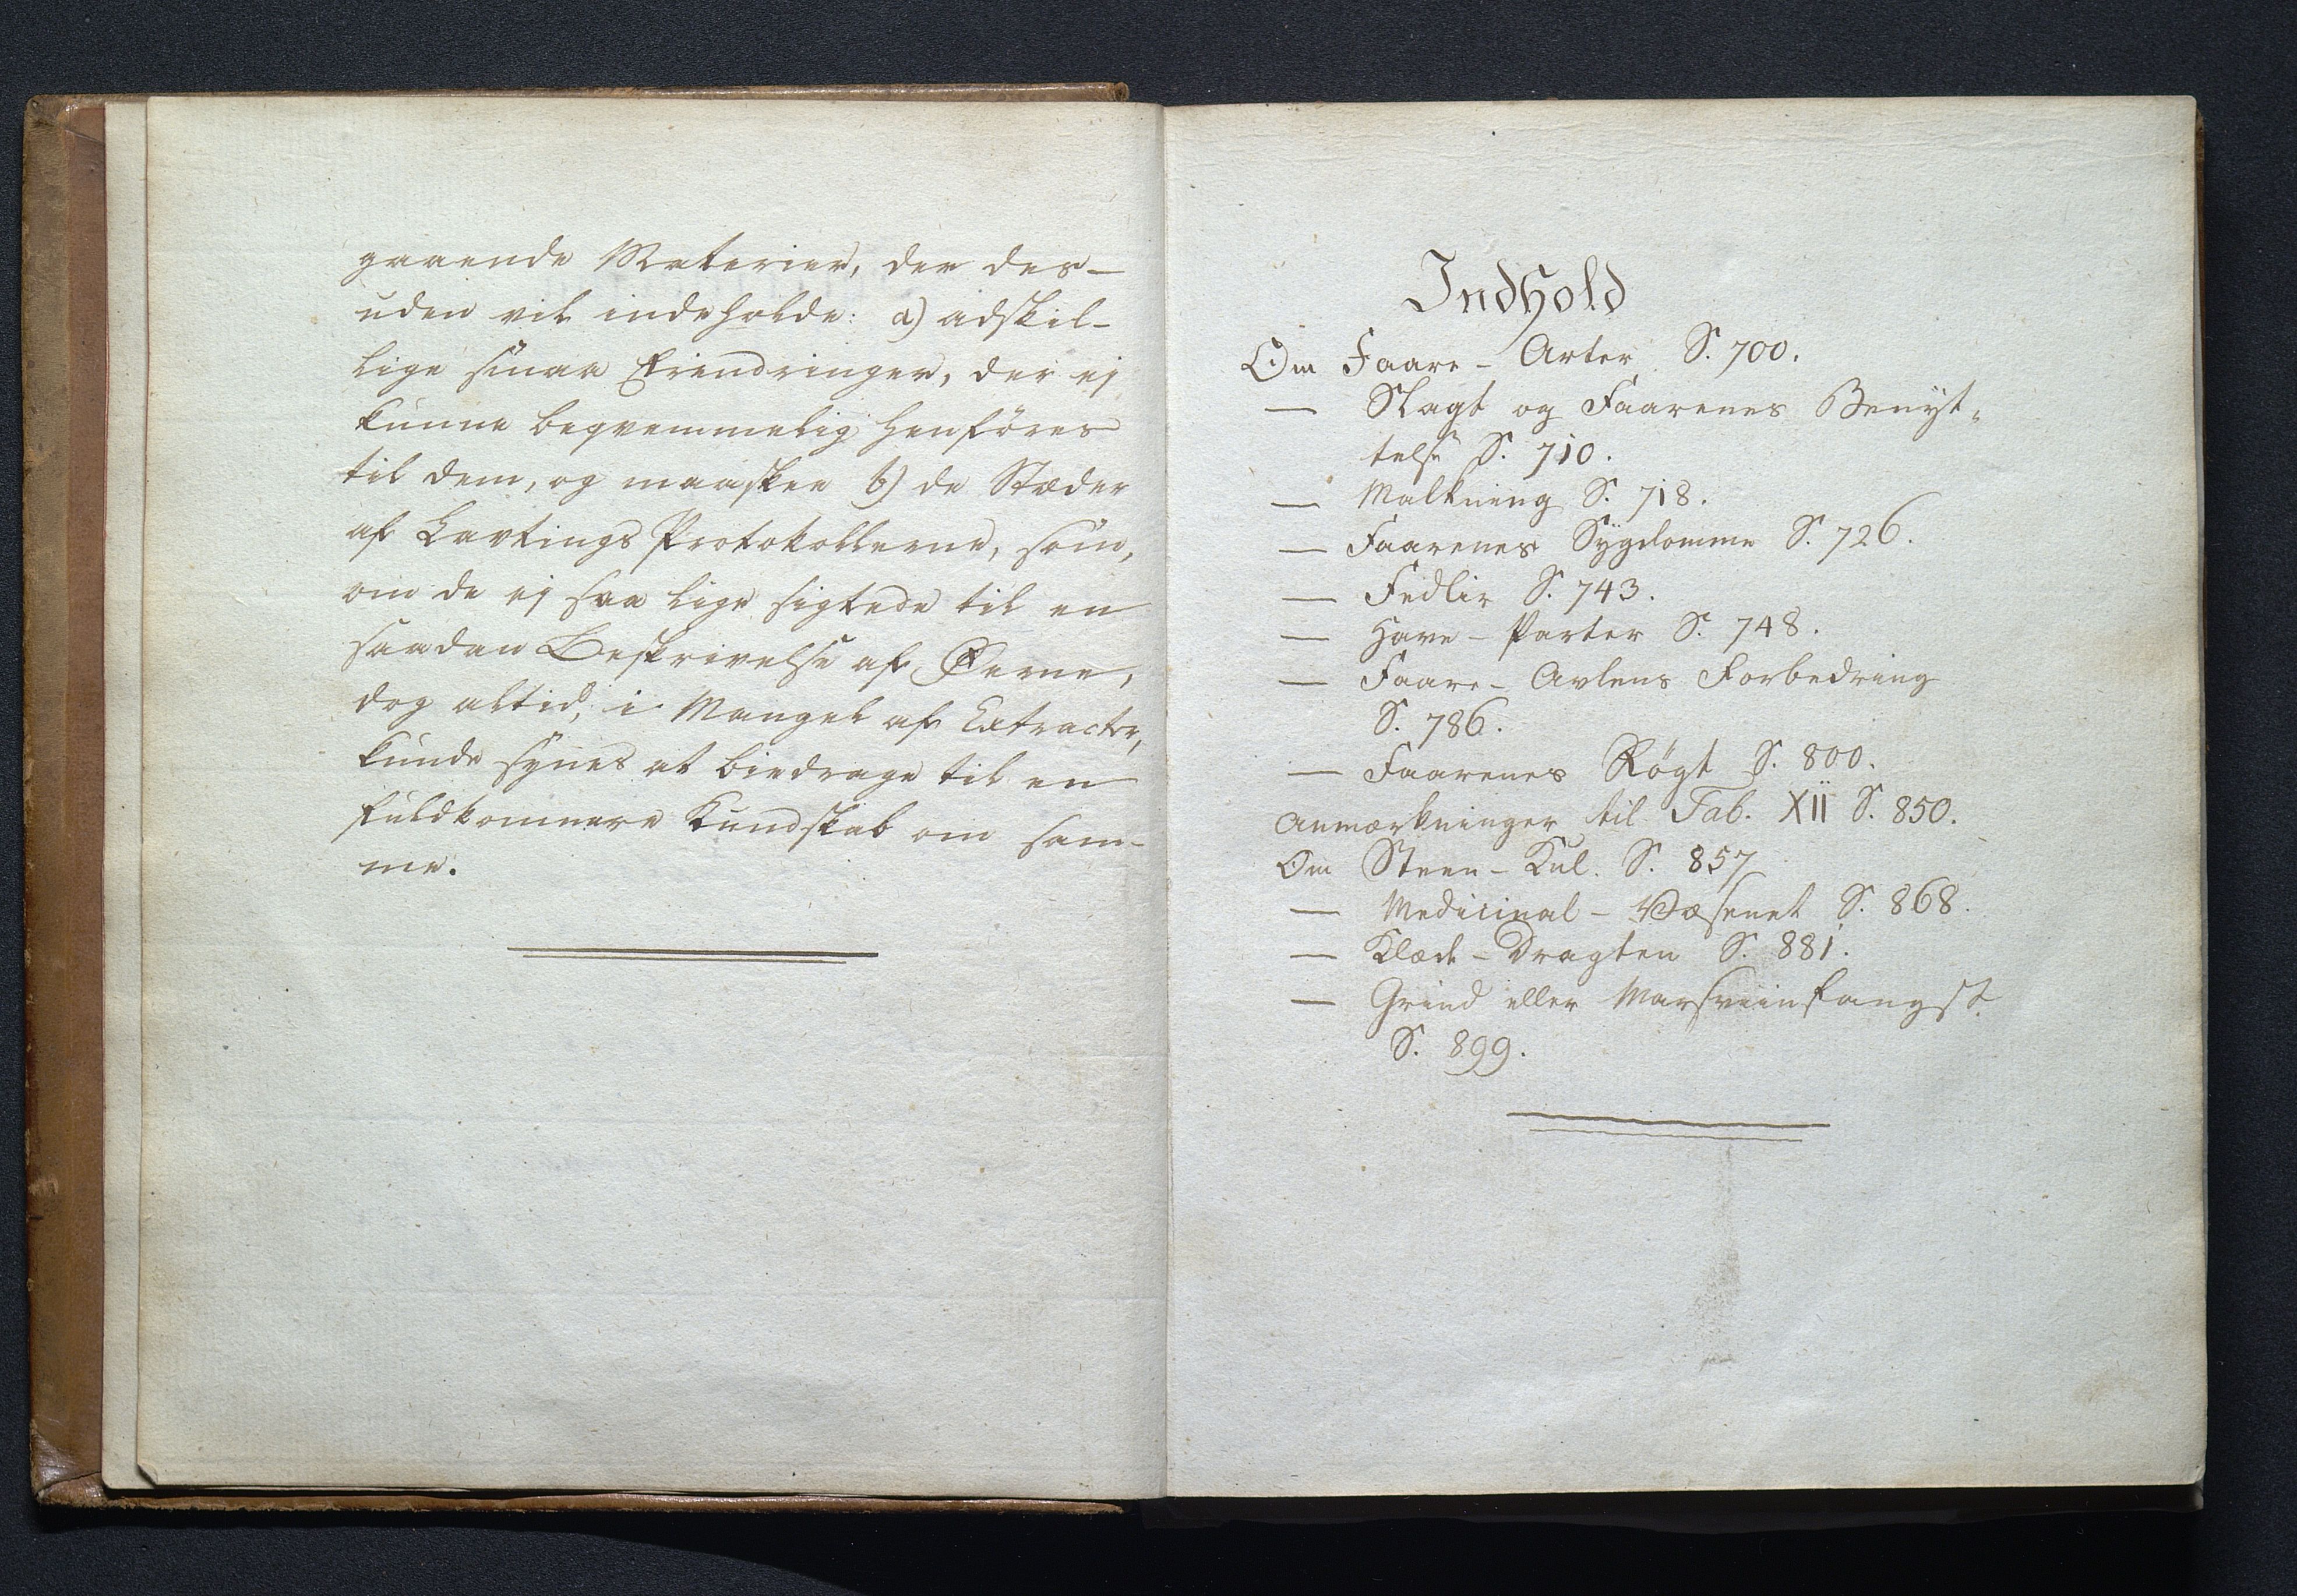 gaaende Materier, der des-
uden vil indeholde: a) adskil-
lige smaa Erindringer, der ej
kunne beqvemmelig henføres
til dem, og maaskee b) de Stæder
af Lavtings Protokollerne, som,
om de ej saa lige sigtede til en
saadan Beskrivelse af Øerne,
dog altid, i Mangel af Extracter,
kunde synes at biedrage til en
fuldkomnere Kundskab om sam-
me.
Indhold
Om Faare-Arter S. 700.
— Slagt og Faarenes Benyt-
telse S. 710.
— Malkning S. 718.
— Faarenes Sygdomme S. 726.
— Fedlir S. 743.
— Have-Parter S. 748.
— Faare-Avlens Forbedring
S. 786.
— Faarenes Røgt S. 800.
Anmærkninger til Tab. XII S. 850.
Om Steen-Kul. S. 857
— Medicinal-Væsenet S. 868.
— Klæde-Dragten S. 881.
— Grind eller Marsviinfangst
S. 899.